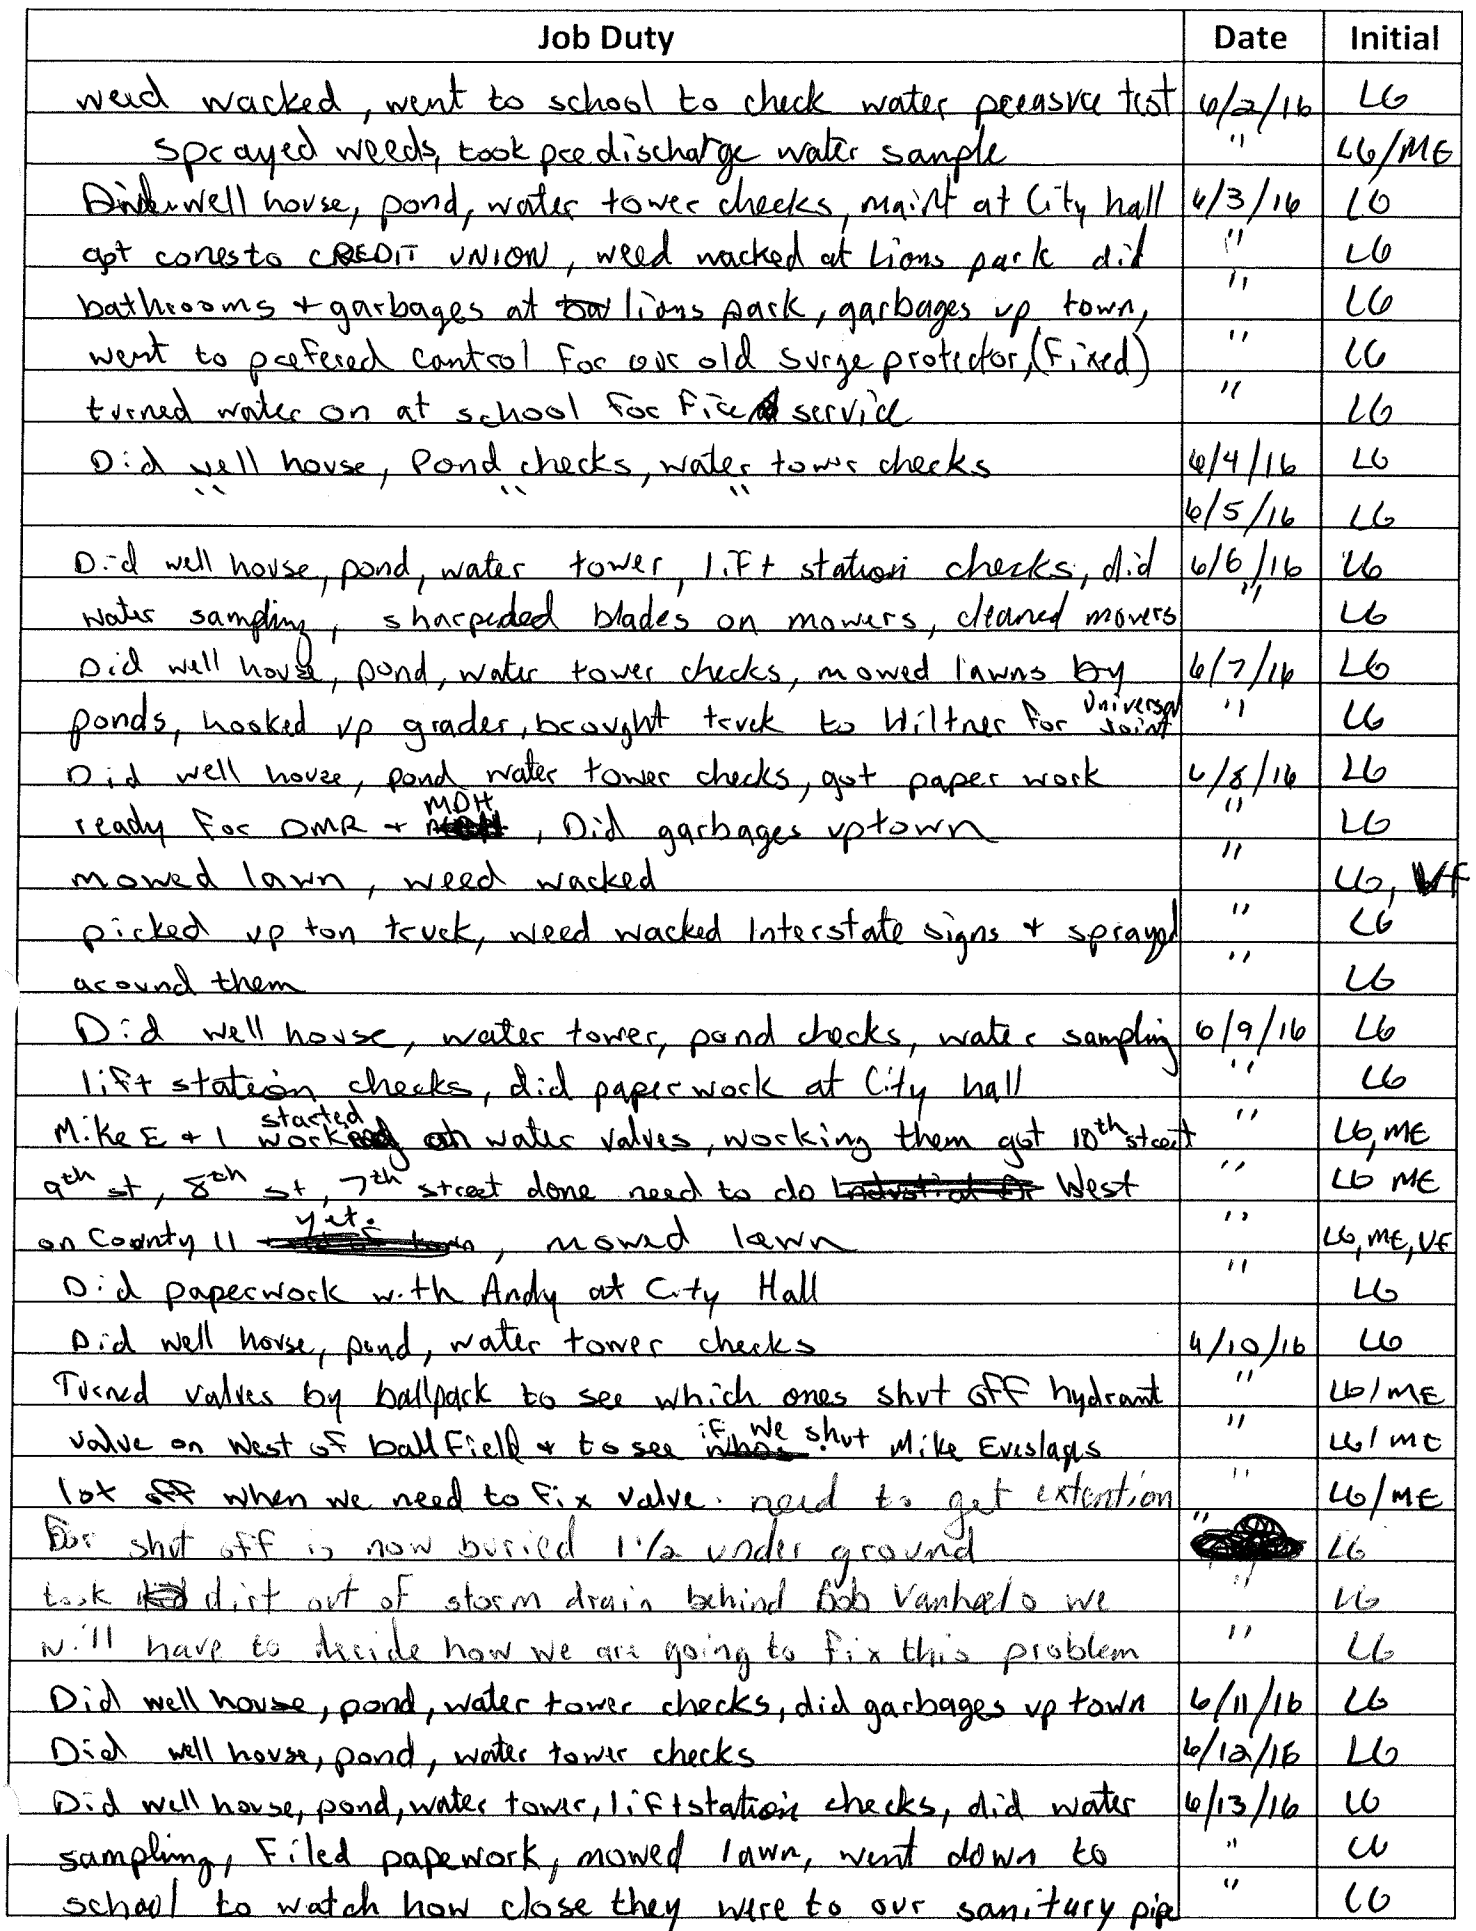 Job Duty Date Initial
weed wacked, went to school to check water preasure test 6/2/16 LG
sprayed weeds, took predischarge water sample " LG/ME
Did well house, pond, water tower checks, maint at City hall 6/3/16 LG
got cones to CREDIT UNION, weed wacked at Lions park did " LG
bathrooms + garbages at lions park, garbages up town, " LG
went to prefered control for our old surge protector, (Fixed) " LG
turned water on at school for Fire service " LG
Did well house, Pond checks, water tower checks 6/4/16 LG
" " " 6/5/16 LG
Did well house, pond, water tower, lift station checks, did 6/6/16 LG
water sampling, sharpeded blades on mowers, cleaned mowers " LG
Did well house, pond, water tower checks, mowed lawns by 6/7/16 LG
ponds, hooked up grader, brought truck to Hiltner for Universal Joint " LG
Did well house, pond water tower checks, got paper work 6/8/16 LG
ready for DMR + MDH, Did garbages uptown " LG
mowed lawn, weed wacked " LG, VF
picked up ton truck, weed wacked Interstate signs + sprayed " LG
around them " LG
Did well house, water tower, pond checks, water sampling 6/9/16 LG
lift station checks, did paperwork at City hall " LG
Mike E + I started water valves, working them got 10th street " LG, ME
9th st, 8th st, 7th street done need to do West " LG ME
on County 11 yet, mowed lawn " LG, ME, VF
Did paperwork with Andy at City Hall " LG
Did well house, pond, water tower checks 6/10/16 LG
Turned valves by ballpark to see which ones shut off hydrant " LG/ME
valve on West of ball Field + to see if we shut Mike " LG/ME
lot off when we need to fix valve. need to get extention " LG/ME
For shut off is now buried 1 1/2 under ground " LG
took dirt out of storm drain behind Bob we " LG
will have to decide how we are going to fix this problem " LG
Did well house, pond, water tower checks, did garbages up town 6/11/16 LG
Did well house, pond, water tower checks 6/12/16 LG
Did well house, pond, water tower, lift station checks, did water 6/13/16 LG
sampling, Filed papework, mowed lawn, went down to " LG
school to watch how close they were to our sanitury pipe " LG